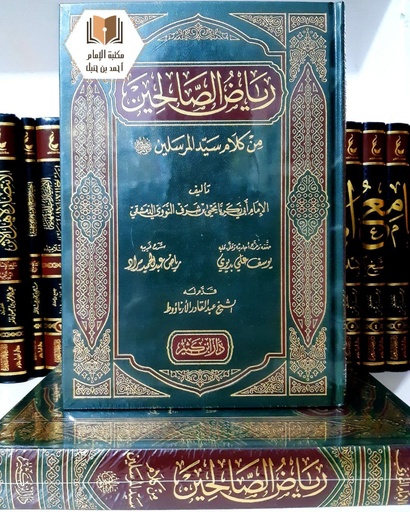 مكتبة الإمام
أحمد بن حنبل
رياض الصالحين
من كلام سيد المرسلين ﷺ
تأليف
الإمام أبي زكريا يحيى بن شرف النووي الدمشقي
يوسف علي بديوي
رياض عبد الحميد مراد
قدم له
الشيخ عبد القادر الأرناؤوط
دار ابن كثير
رياض الصالحين
من كلام
سيد المرسلين